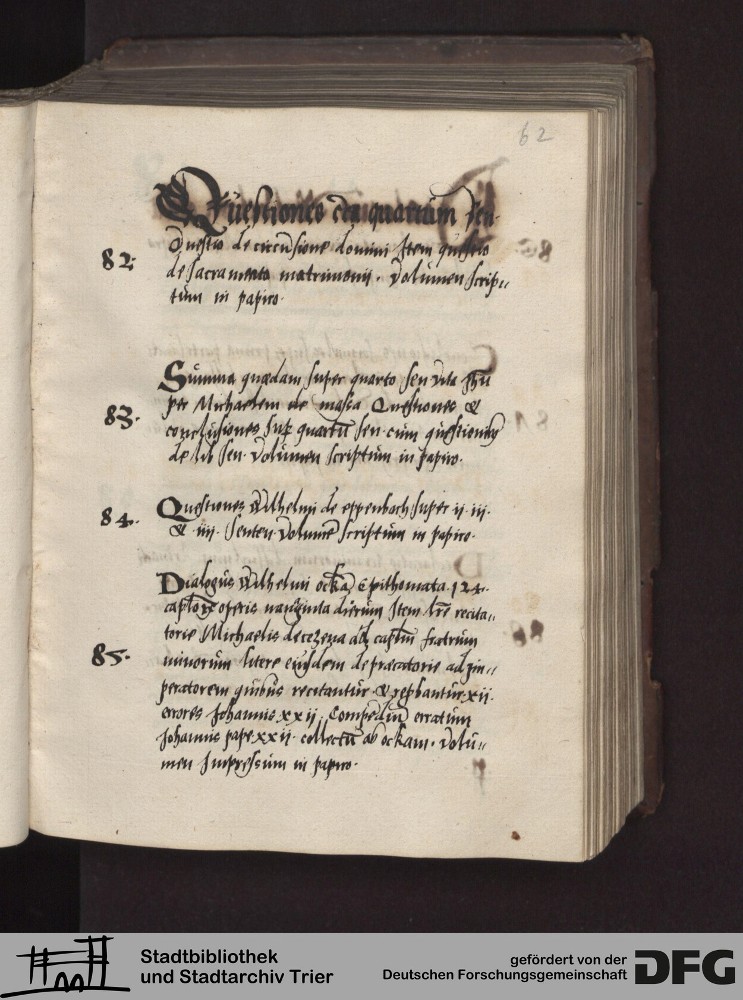 62
Questiones circa quartum sen.
Questio de circũsione domini Item questio
82. de sacramento matrimonii. Volumen scrip„
tum in papiro.
Summa quædam super quarto sen
per Michaelem de massa Questiones &
83. conclusiones sup quartũ sen. cum questionibus
de lib sen. Volumen scriptum in papiro.
Questiones Wilhelmi de eppenbach super ii. iii.
84. & iiii. Senten Volumẽ scriptum in papiro.
Dialogus Wilhelmi ockã Epithomata. 124.
operis nonaginta dierum Item lr̃e recita„
torie Michaelis de cezena ad captm̃ fratrum
85. minorum litere eiusdem deprecatorie ad im„
peratorem quibus recitantur & rephantur xii.
errores Johannis xxii. Compediũ erratum
Johannis pape xxii. collectũ ab ockam. Volu„
men Impressum in papiro.
Stadtbibliothek
und Stadtarchiv Trier
gefördert von der
Deutschen Forschungsgemeinschaft
DFG